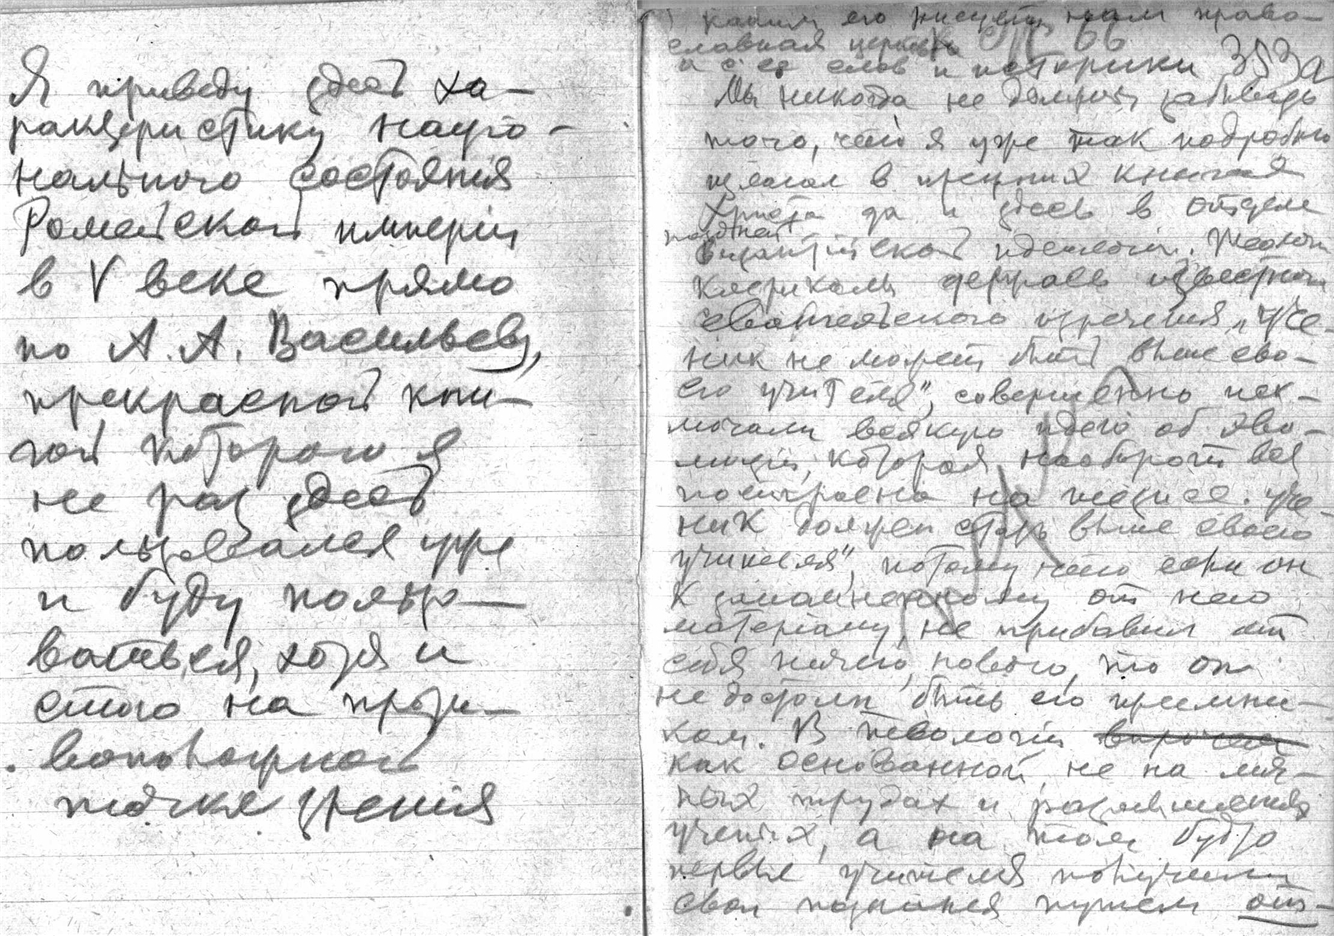 Я приведу здесь ха-
рактеристику нацiо-
нального состоянiя
Ромейской имперiи
в V веке прямо
по А. А. Васильеву,
прекрасной кни-
гой которого я
не раз здесь
пользовался уже
и буду пользо-
ваться, хотя и
стою на проти-
воположной
точке зрѣнiя
каким его рисует нам право-
славная церковь
и с ея слов и историки 353а
Мы никогда не должны забывать
того, что я уже так подробно
излагал в прежних книгах
Христа да и здесь в отделе
поздней
византiйской идеологiи.
клерикалы держась известного
евангельского изречения „Уче-
ник не может быть выше сво-
его учителя", совершенно иск-
лючали всякую идею об эво-
люцiи, которая наоборот вся
построена на тезисе: „уче-
ник должен стать выше своего
учителя", потому что если он
к завещанному от него
матерiалу, не прибавил от
себя ничего нового, то он
не достоин быть его преемни-
ком. В теологiи впрочем
как основанной не на лич-
ных трудах и размышлениях
ученых, а на том будто
первые учителя получили
свои познания путем от-